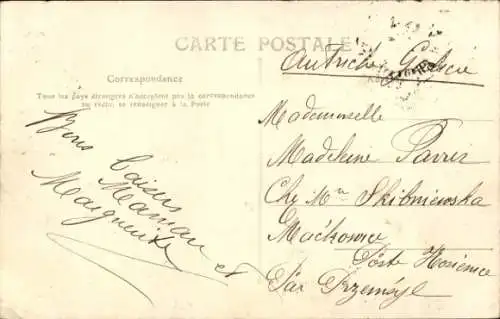 CARTE POSTALE
Autriche Galicie
Correspondance
Tous les pays étrangers n'acceptent pas la correspondance
au recto, se renseigner à la Poste
Bons baisers
Maman et
Marguerite
Mademoiselle
Madeleine
Che Mme Skibniewska
Maćkowice
Poste
Par Przemýsl